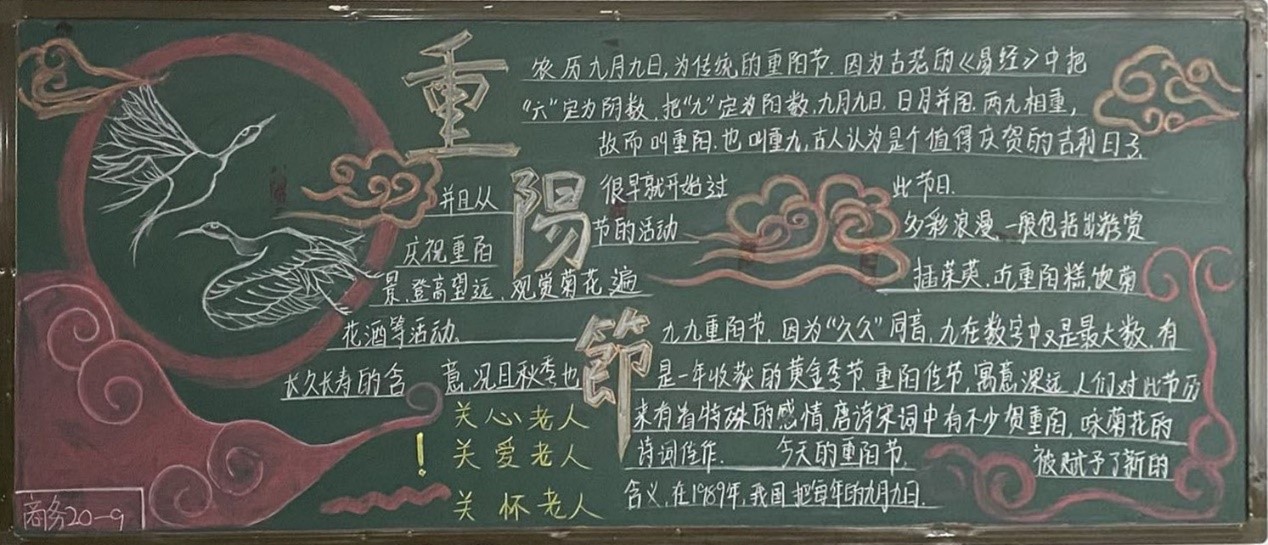 重
阳
節
农历九月九日,为传统的重阳节.因为古老的《易经》中把
“六”定为阴数,把“九”定为阳数,九月九日,日月并阳,两九相重,
故而叫重阳,也叫重九,古人认为是个值得庆贺的吉利日子,
并且从 很早就开始过 此节日.
庆祝重阳 节的活动 多彩浪漫,一般包括出游赏
景,登高望远,观赏菊花,遍 插茱萸,吃重阳糕,饮菊
花酒等活动. 九九重阳节,因为“久久”同音,九在数字中又是最大数,有
长久长寿的含 意,况且秋季也 是一年收获的黄金季节,重阳佳节,寓意深远,人们对此节历
来有着特殊的感情,唐诗宋词中有不少贺重阳,咏菊花的
诗词佳作. 今天的重阳节, 被赋予了新的
含义,在1989年,我国把每年的九月九日.
关心老人
关爱老人
!
关怀老人
商务20-9